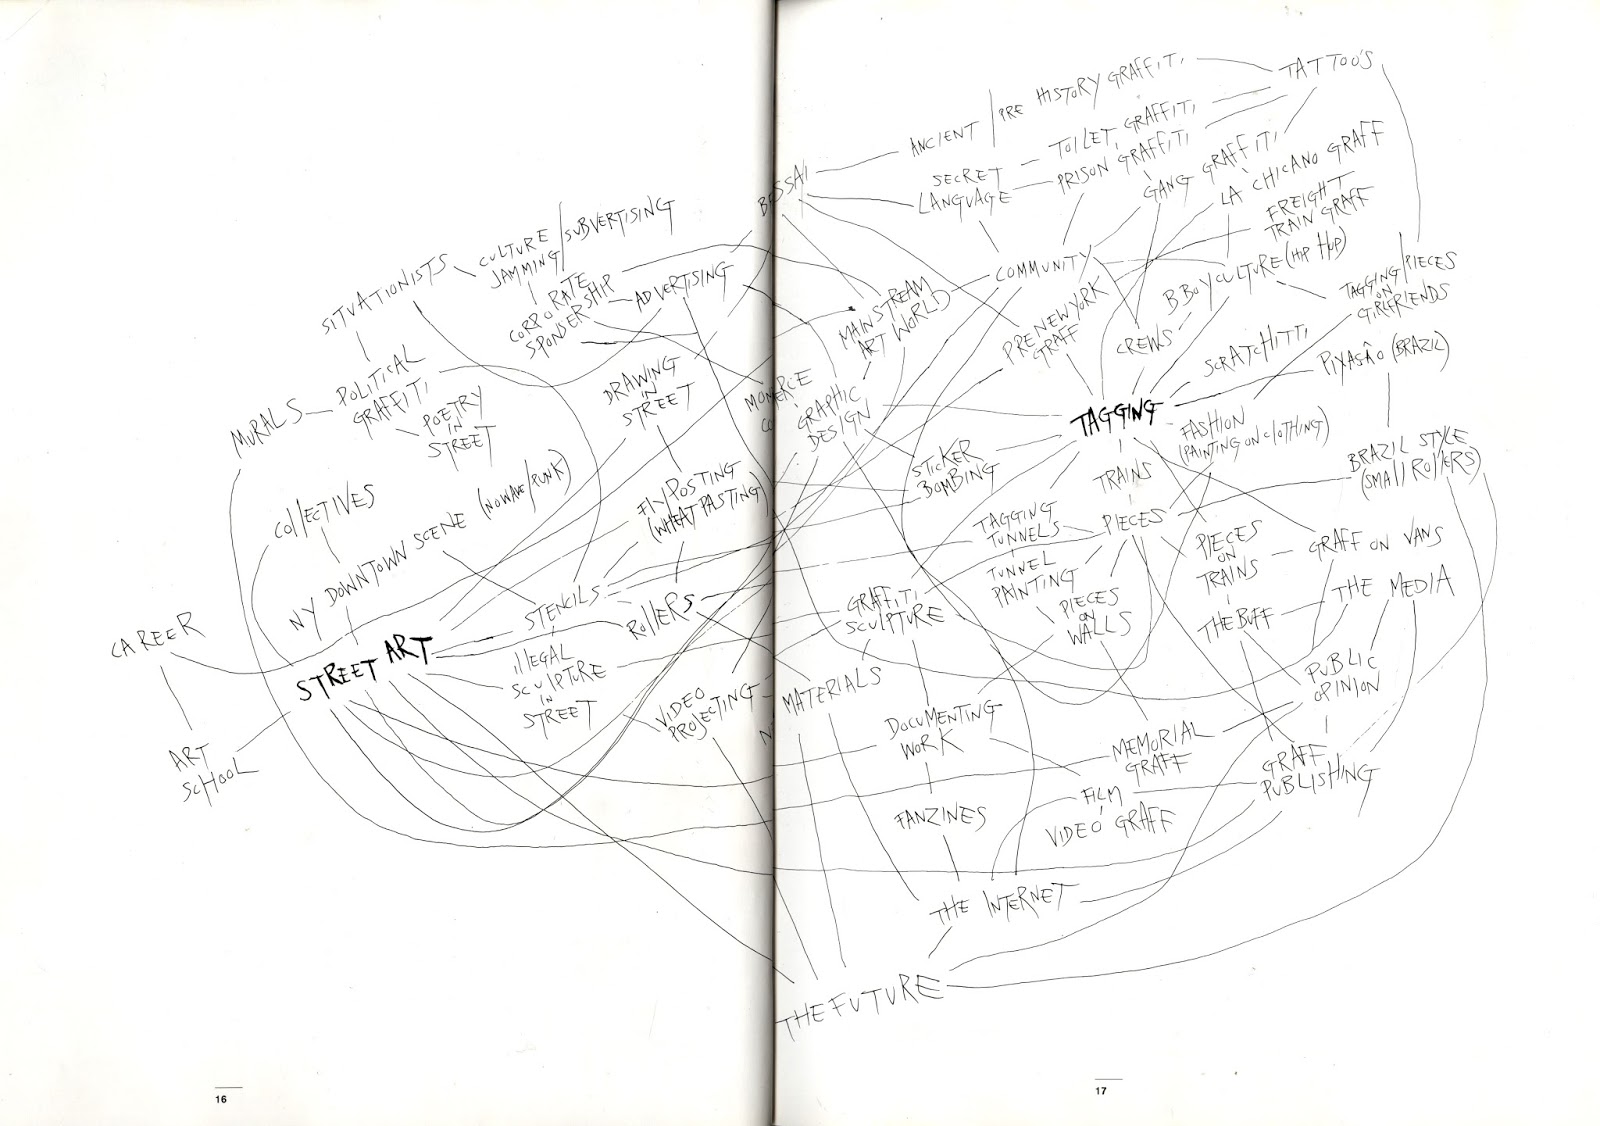 ANCIENT/PRE HISTORY GRAFFITI
TATTOO'S
TOILET GRAFFITI
PRISON GRAFFITI
SECRET
LANGUAGE
GANG GRAFFITI
LA CHICANO GRAFF
FREIGHT
TRAIN GRAFF
CULTURE/SUBVERTISING
JAMMING
SITUATIONISTS
CORPORATE
SPONSERSHIP
ADVERTISING
MAINSTREAM
ART WORLD
COMMUNITY
PRE NEW YORK
GRAFF
BBOY CULTURE (HIP HUP)
TAGGING/PIECES
ON
GIRLFRIENDS
CREWS
SCRATCHITTI
PIXASÃO (BRAZIL)
MURALS
POLITICAL
GRAFFITI
POETRY
IN
STREET
DRAWING
IN
STREET
GRAPHIC
DESIGN
TAGGING
FASHION
(PAINTING ON CLOTHING)
BRAZIL STYLE
(SMALL ROLLERS)
COLLECTIVES
NY DOWNTOWN SCENE (NOWAVE/PUNK)
FLYPOSTING
(WHEAT PASTING)
STICKER
BOMBING
TRAINS
PIECES
TAGGING
TUNNELS
TUNNEL
PAINTING
PIECES
ON
TRAINS
GRAFF ON VANS
THE MEDIA
THE BUFF
PIECES
ON
WALLS
CAREER
STREET ART
STENCILS
ROLLERS
ILLEGAL
SCULPTURE
IN
STREET
GRAFFITI
SCULPTURE
VIDEO
PROJECTING
MATERIALS
PUBLIC
OPINION
ART
SCHOOL
DOCUMENTING
WORK
MEMORIAL
GRAFF
GRAFF
PUBLISHING
FANZINES
FILM
VIDEO GRAFF
THE INTERNET
THE FUTURE
16
17